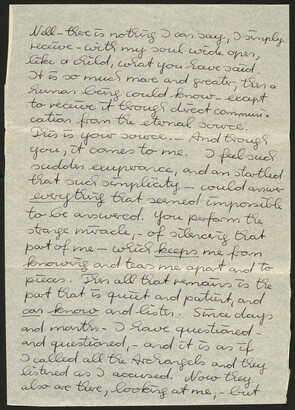 Well – there is nothing I can say, I simply
receive – with my soul wide open,
like a child, what you have said.
It is so much more and greater, then a
human being could know – except
to receive it through direct communi-
cation from the eternal source.
This is your source. – And through
you, it comes to me. I feel such
sudden exuperance, and am startled
that such simplicity – could answer
everything that seemed impossible
to be answered. You perform the
strange miracle, – of silencing that
part of me – which keeps me from
knowing and tears me apart and to
pieces. Then all that remains is the
part that is quiet and patient, and
can know and listen. Since days
and months – I have questioned –
and questioned, – and it is as if
I called all the Archangels and they
listened as I accused. Now they
also are there, looking at me, – but